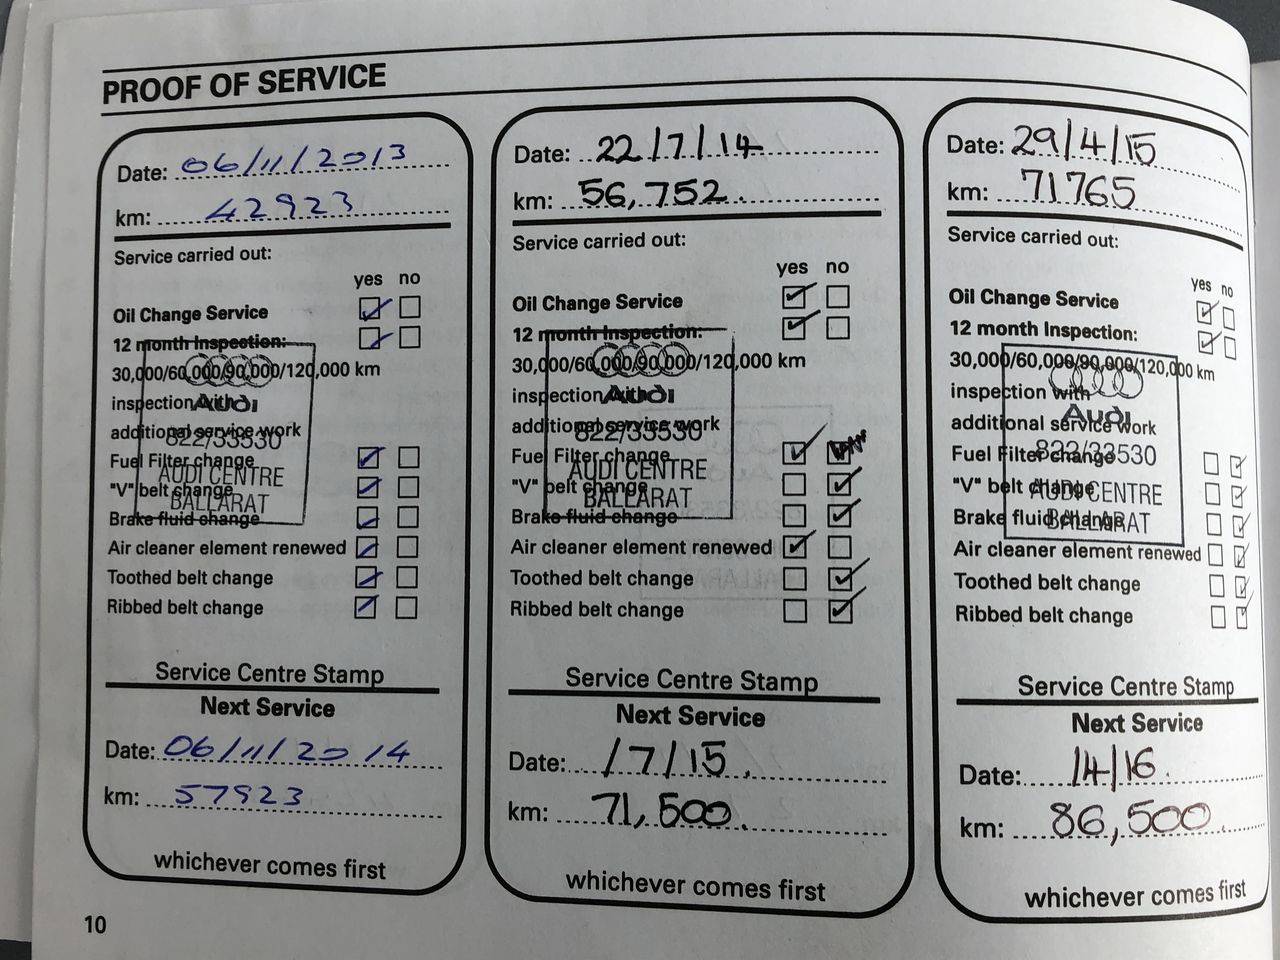 PROOF OF SERVICE
Date: 06/11/2013
km: 42923
Service carried out:
yes no
Oil Change Service
12 month Inspection:
30,000/60,000/90,000/120,000 km
inspection with
additional service work
Fuel Filter change
"V" belt change
Brake fluid change
Air cleaner element renewed
Toothed belt change
Ribbed belt change
Audi
822/33530
AUDI CENTRE
BALLARAT
Service Centre Stamp
Next Service
Date: 06/11/2014
km: 57923
whichever comes first
Date: 22/7/14
km: 56,752.
Service carried out:
yes no
Oil Change Service
12 month Inspection:
30,000/60,000/90,000/120,000 km
inspection with
additional service work
Fuel Filter change
"V" belt change
Brake fluid change
Air cleaner element renewed
Toothed belt change
Ribbed belt change
Audi
822/33530
AUDI CENTRE
BALLARAT
Service Centre Stamp
Next Service
Date: /7/15.
km: 71,500.
whichever comes first
Date: 29/4/15
km: 71765
Service carried out:
yes no
Oil Change Service
12 month Inspection:
30,000/60,000/90,000/120,000 km
inspection with
additional service work
Fuel Filter change
"V" belt change
Brake fluid change
Air cleaner element renewed
Toothed belt change
Ribbed belt change
Audi
822/33530
AUDI CENTRE
BALLARAT
Service Centre Stamp
Next Service
Date: /4/16.
km: 86,500
whichever comes first
10